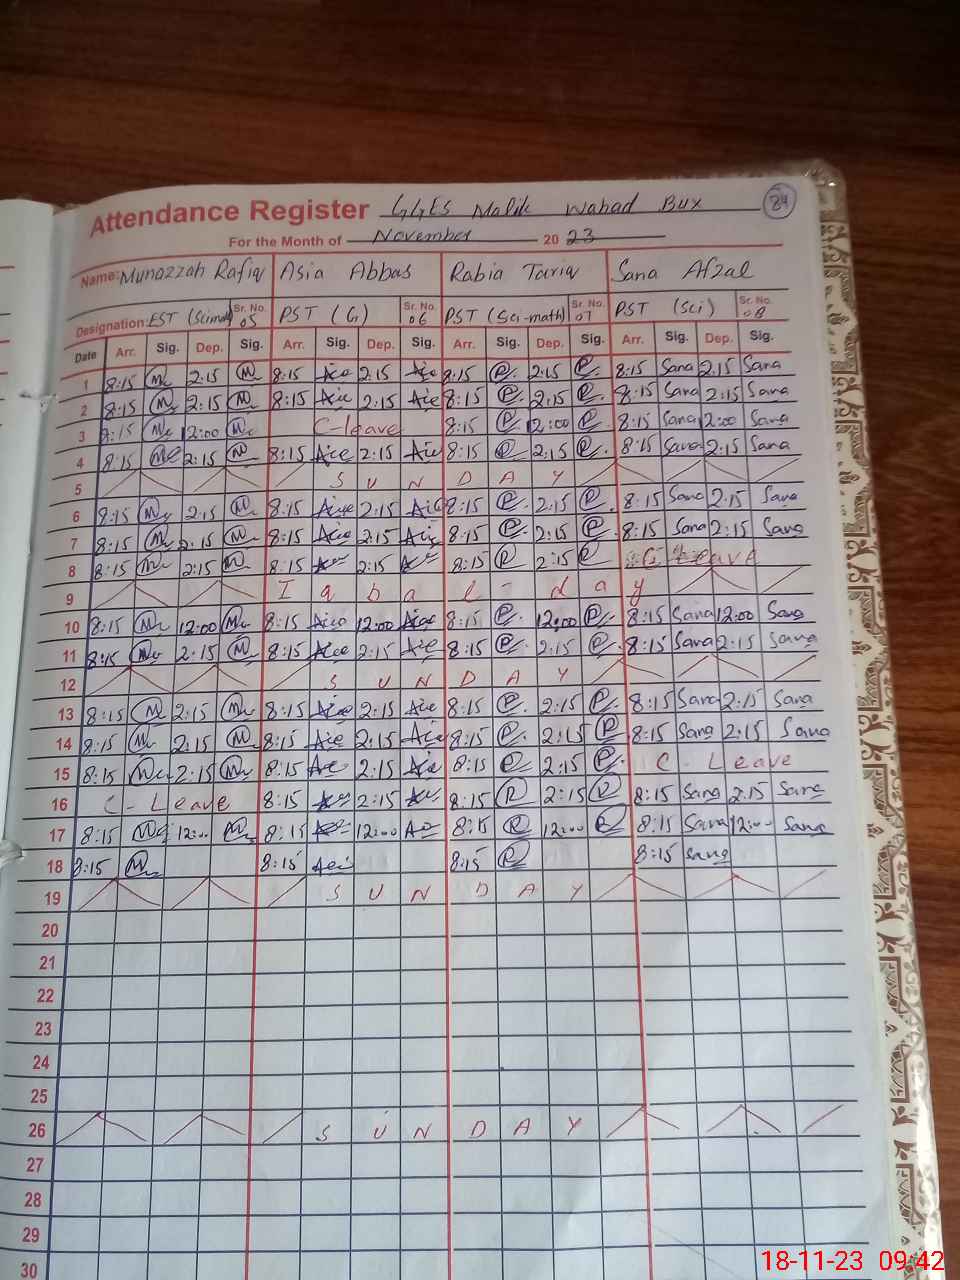 Attendance Register GGES Malik Wahad Bux 24
For the Month of November 20 23
Name: Munazzah Rafiq Asia Abbas Rabia Tariq Sana Afzal
Designation: EST (Scimath) Sr. No. 05 PST (G) Sr. No. 06 PST (Sci-math) Sr. No. 07 PST (Sci) Sr. No. 08
Date Arr. Sig. Dep. Sig. Arr. Sig. Dep. Sig. Arr. Sig. Dep. Sig. Arr. Sig. Dep. Sig.
1 8:15 2:15 8:15 2:15 8:15 2:15 8:15 Sana 2:15 Sana
2 8:15 2:15 8:15 2:15 8:15 2:15 8:15 Sana 2:15 Sana
3 8:15 12:00 C-leave 8:15 12:00 8:15 Sana 12:00 Sana
4 8:15 2:15 8:15 2:15 8:15 2:15 8:15 Sana 2:15 Sana
5 S U N D A Y
6 8:15 2:15 8:15 2:15 8:15 2:15 8:15 Sana 2:15 Sana
7 8:15 2:15 8:15 2:15 8:15 2:15 8:15 Sana 2:15 Sana
8 8:15 2:15 8:15 2:15 8:15 2:15 C Leave
9 I q b a l - d a y
10 8:15 12:00 8:15 12:00 8:15 12:00 8:15 Sana 12:00 Sana
11 8:15 2:15 8:15 2:15 8:15 2:15 8:15 Sana 2:15 Sana
12 S U N D A Y
13 8:15 2:15 8:15 2:15 8:15 2:15 8:15 Sana 2:15 Sana
14 8:15 2:15 8:15 2:15 8:15 2:15 8:15 Sana 2:15 Sana
15 8:15 2:15 8:15 2:15 8:15 2:15 C - Leave
16 C - Leave 8:15 2:15 8:15 2:15 8:15 Sana 2:15 Sana
17 8:15 12:00 8:15 12:00 8:15 12:00 8:15 Sana 12:00 Sana
18 8:15 8:15 8:15 8:15 Sana
19 S U N D A Y
20
21
22
23
24
25
26 S U N D A Y
27
28
29
30
18-11-23 09:42